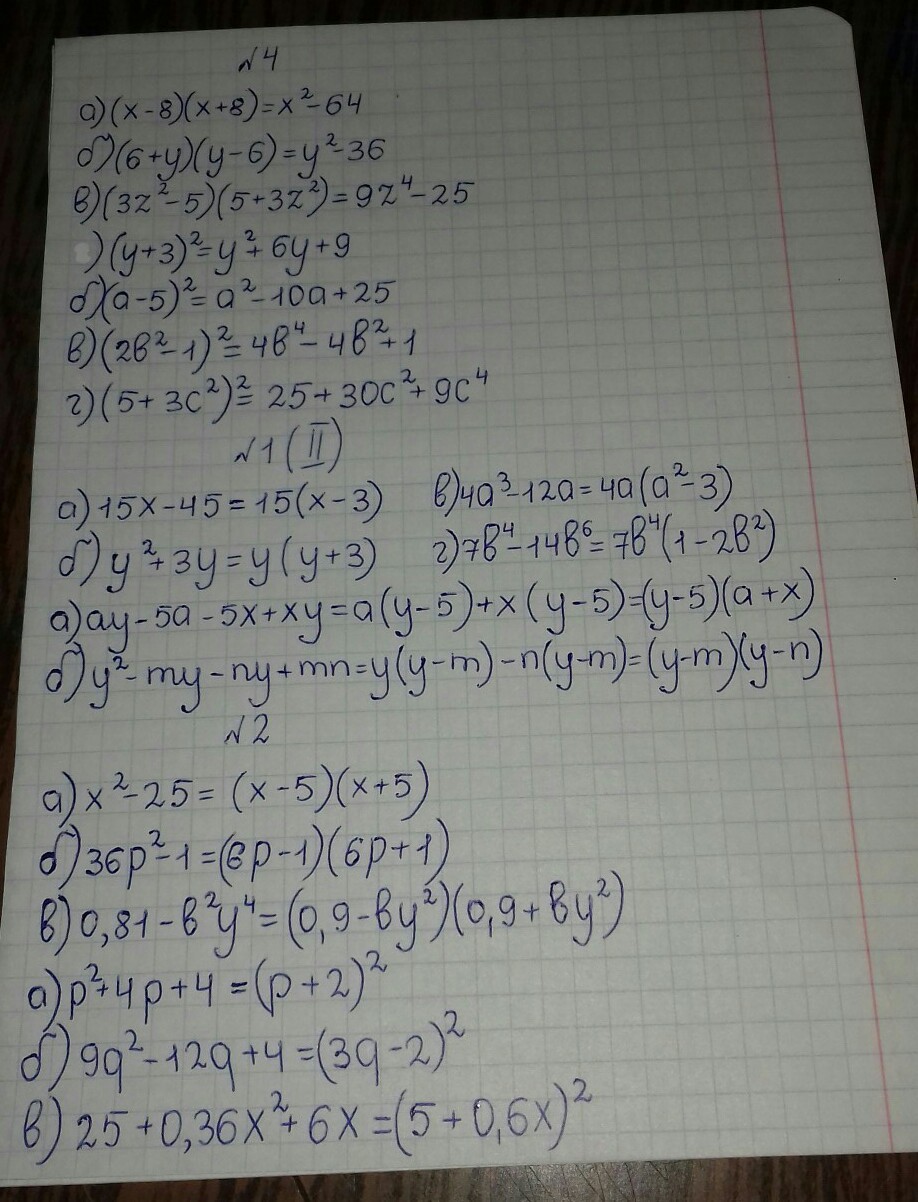 №4
а)(x-8)(x+8)=x²-64
б)(6+y)(y-6)=y²-36
в)(3z²-5)(5+3z²)=9z⁴-25
)(y+3)²=y²+6y+9
б)(a-5)²=a²-10a+25
в)(2в²-1)²=4в⁴-4в²+1
г)(5+3c²)²=25+30c²+9c⁴
№1(II)
а)15x-45=15(x-3) в)4a³-12a=4a(a²-3)
б)y²+3y=y(y+3) г)7в⁴-14в⁶=7в⁴(1-2в²)
а)ay-5a-5x+xy=a(y-5)+x(y-5)=(y-5)(a+x)
б)y²-my-ny+mn=y(y-m)-n(y-m)=(y-m)(y-n)
№2
а)x²-25=(x-5)(x+5)
б)36p²-1=(6p-1)(6p+1)
в)0,81-в²y⁴=(0,9-вy²)(0,9+вy²)
а)p²+4p+4=(p+2)²
б)9q²-12q+4=(3q-2)²
в)25+0,36x²+6x=(5+0,6x)²